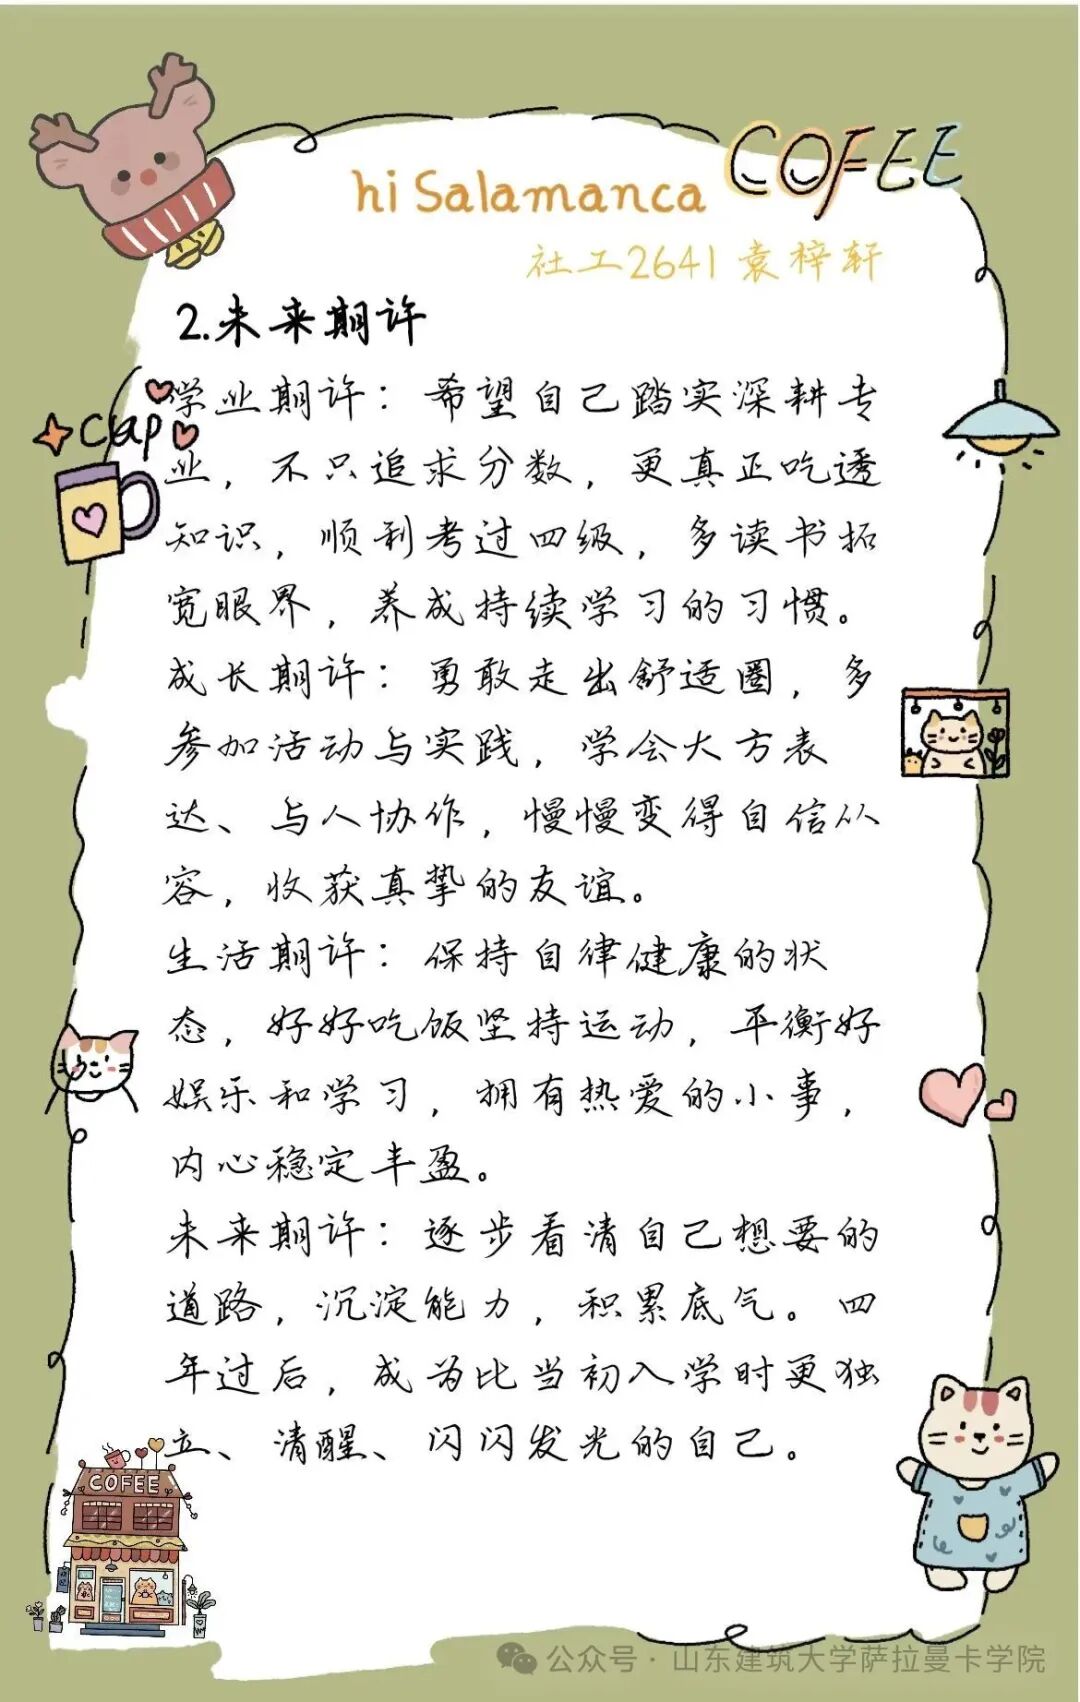 COFEE
hi Salamanca
社工2641 袁梓轩
2.未来期许
学业期许：希望自己踏实深耕专
cup
业，不只追求分数，更真正吃透
知识，顺利考过四级，多读书拓
宽眼界，养成持续学习的习惯。
成长期许：勇敢走出舒适圈，多
参加活动与实践，学会大方表
达、与人协作，慢慢变得自信从
容，收获真挚的友谊。
生活期许：保持自律健康的状
态，好好吃饭坚持运动，平衡好
娱乐和学习，拥有热爱的小事，
内心稳定丰盈。
未来期许：逐步看清自己想要的
道路，沉淀能力，积累底气。四
年过后，成为比当初入学时更独
立、清醒、闪闪发光的自己。
COFEE
公众号·山东建筑大学萨拉曼卡学院